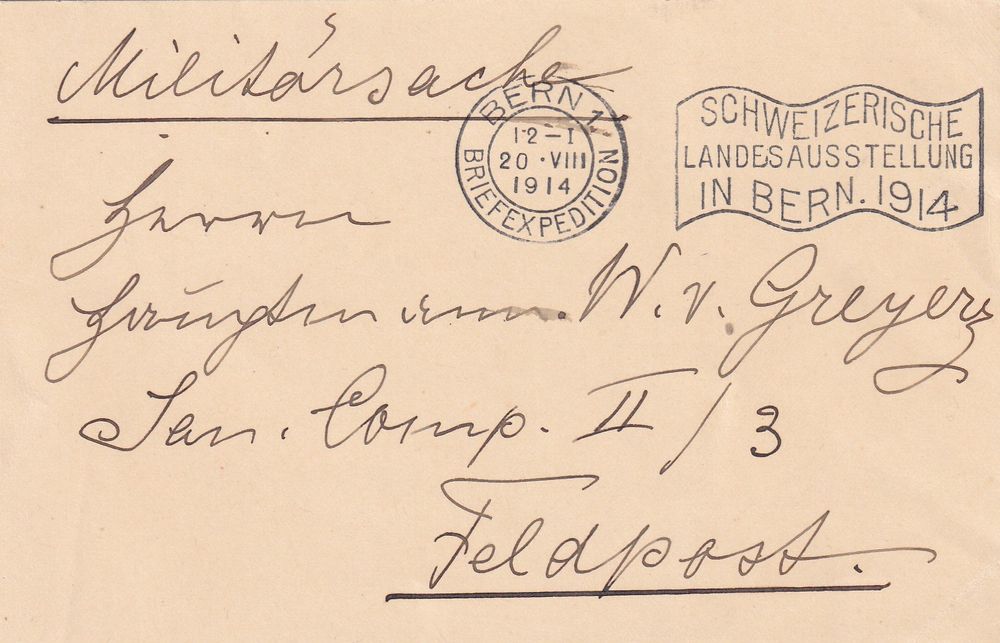 Militärsache
BERN 1
12-I
20·VIII
1914
BRIEFEXPEDITION
SCHWEIZERISCHE
LANDESAUSSTELLUNG
IN BERN. 1914
Herrn
Hauptmann. W. v. Greyerz
San. Comp. II/3
Feldpost.